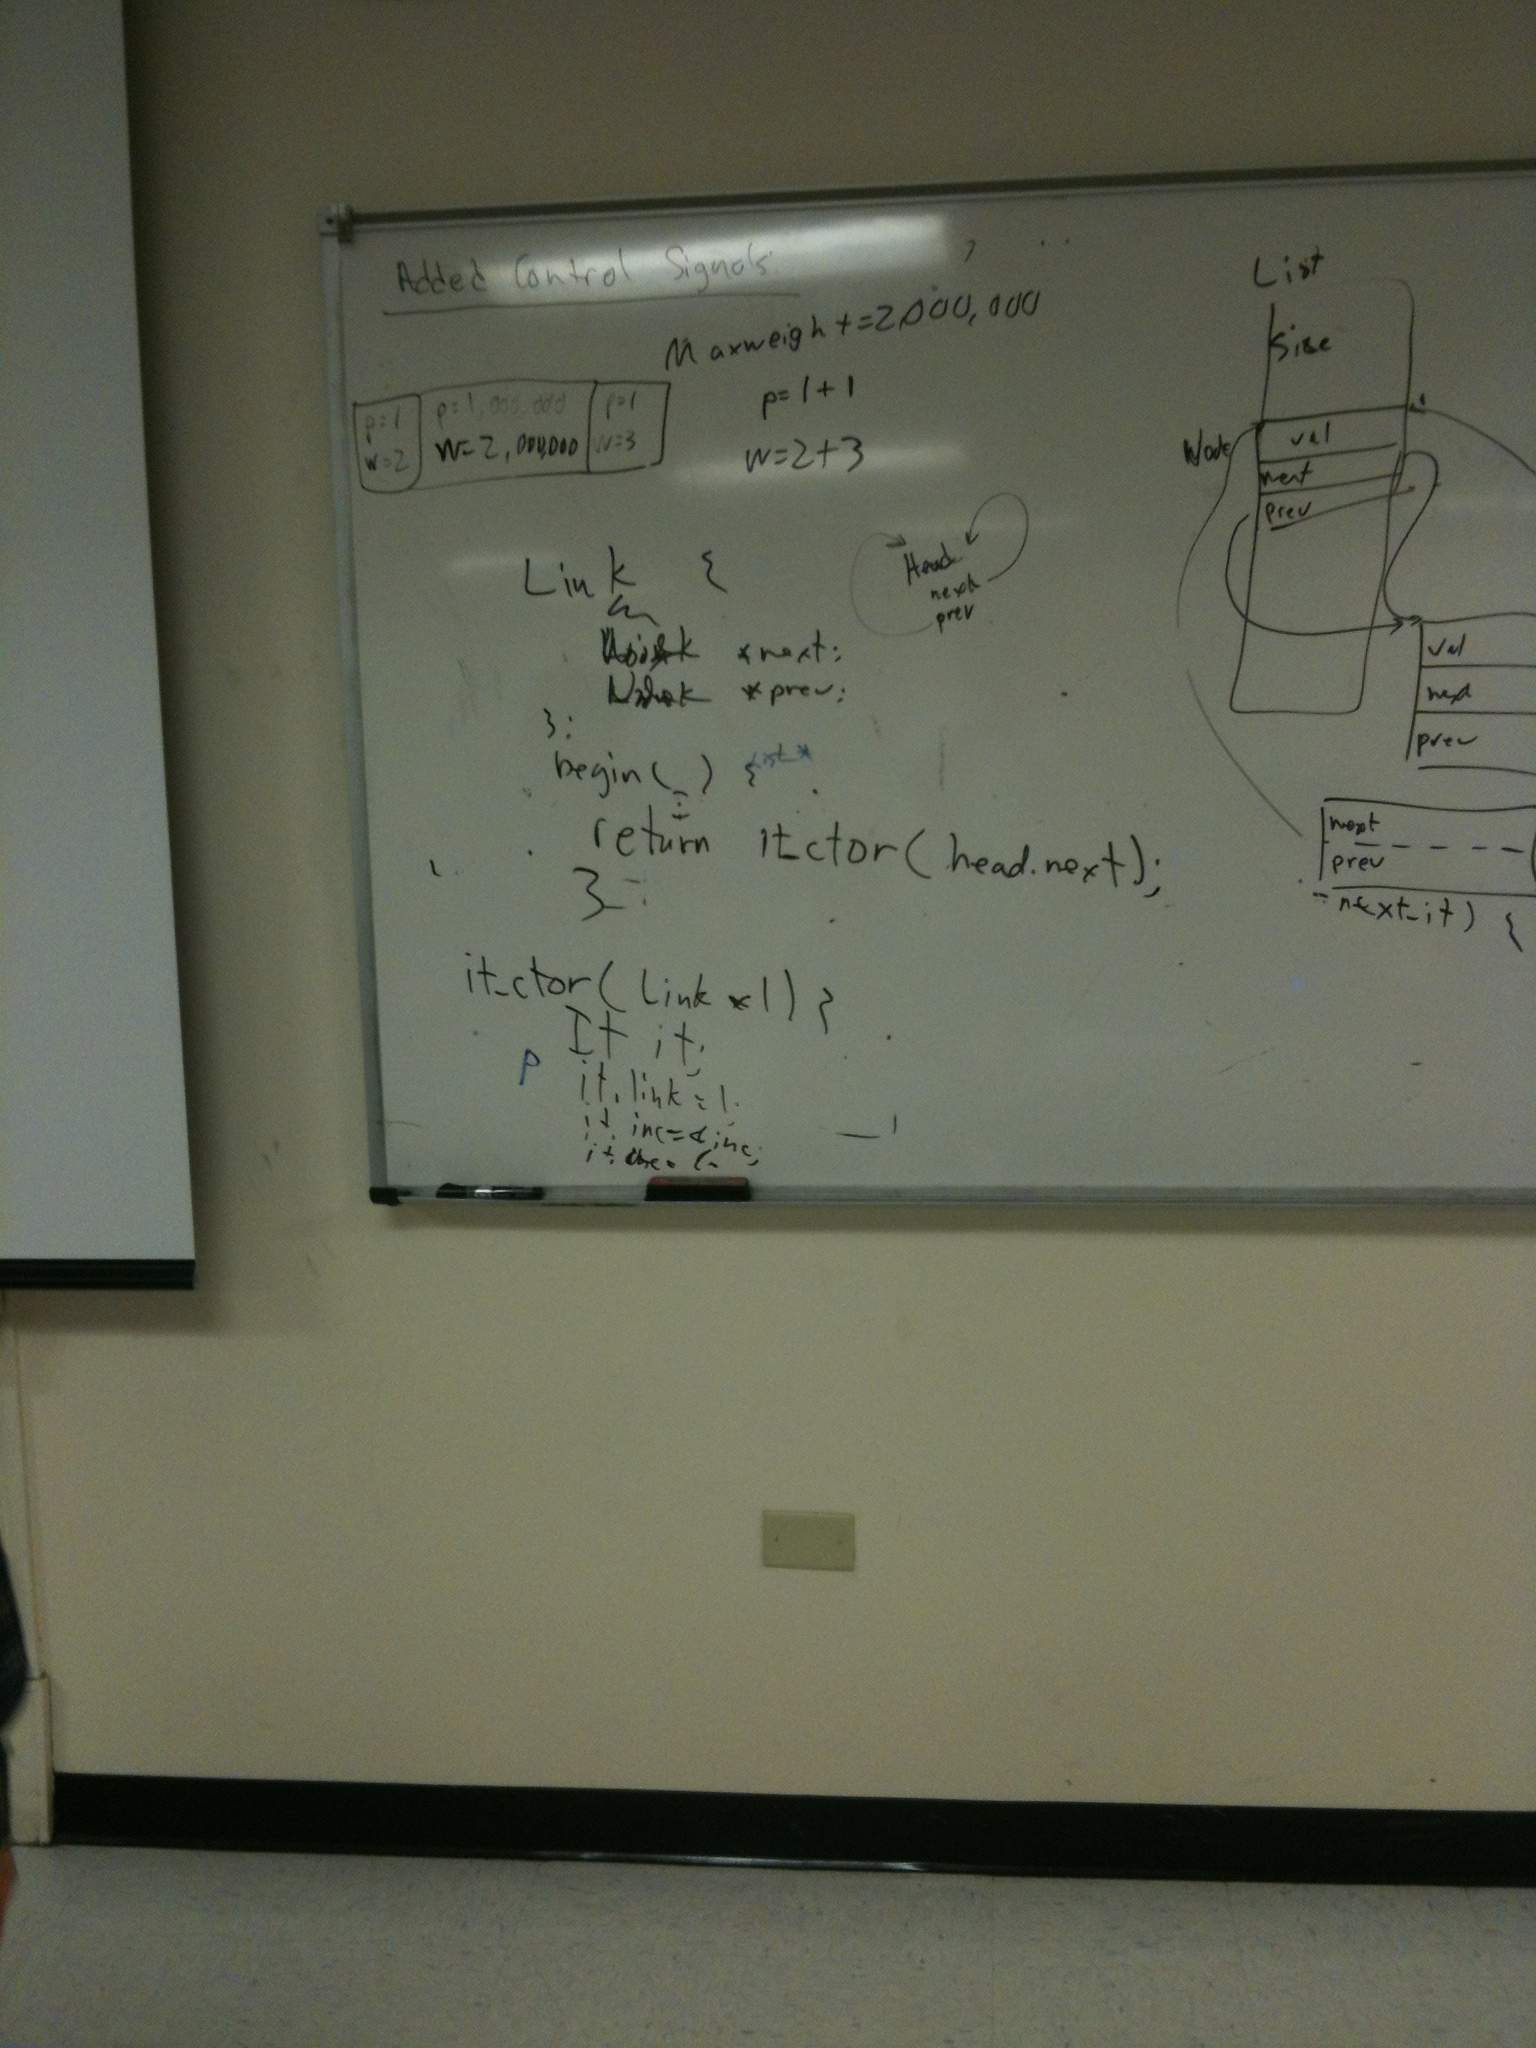 Added Control Signals
Maxweight=2,000,000
p=1
w=2
p=1,000,000
w=2,000,000
p=1
w=3
p=1+1
w=2+3
Link {
*next;
*prev;
};
Head
next
prev
begin( ) {
return it_ctor(head.next);
}
it_ctor(Link *l) {
It it;
p
it.link=l;
it.inc=&inc;
List
size
Node
val
next
prev
val
next
prev
next
prev
next_it) {